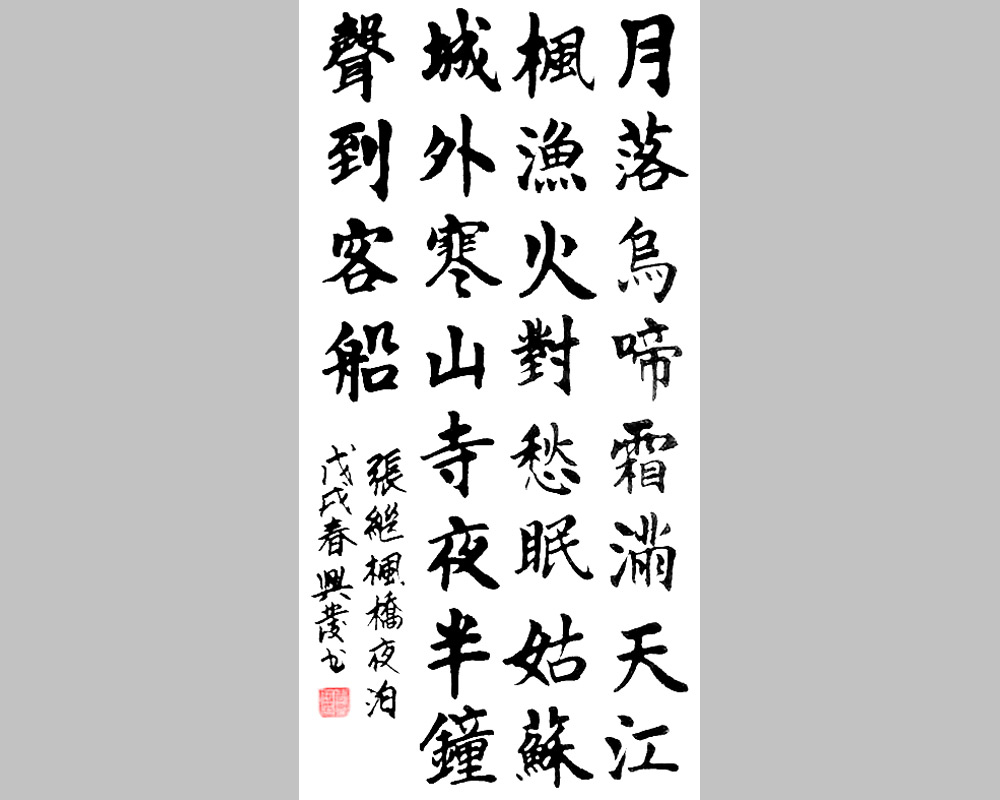 月落烏啼霜滿天江
楓漁火對愁眠姑蘇
城外寒山寺夜半鐘
聲到客船
張繼楓橋夜泊
戊戌春興發书